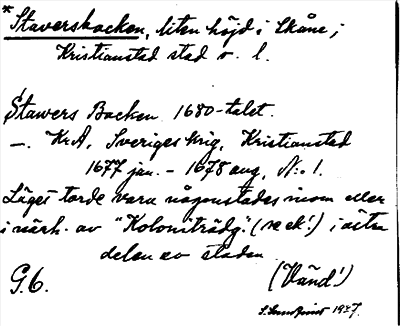 *Staversbacken, liten höjd i Skåne;
Kristianstad stad o. l.
Stawers Backen 1680-talet.
–. KrA, Sveriges krig, Kristianstad
1677 jan. – 1678 aug, N:o 1.
Läget torde vara någonstades inom eller
i närh. av "Koloniträdg." (se ek!) i östra
delen av staden
G. 6.
(Vänd!)
1927.